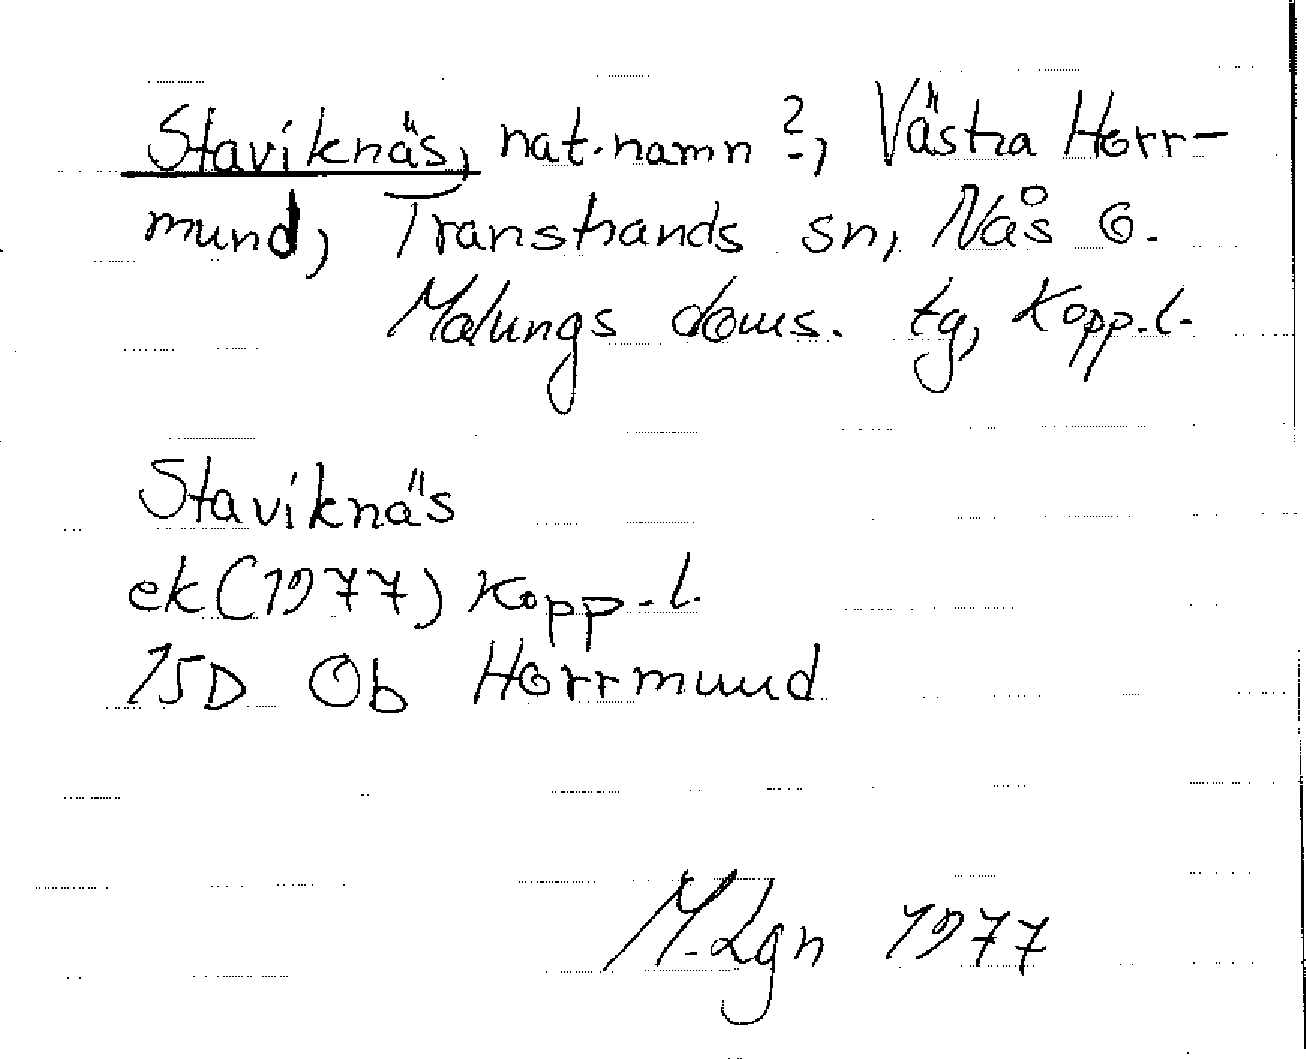 Staviknäs, nat.namn ?, Västra Horr-
mund, Transtrands sn, Nås o.
Malungs doms. tg, Kopp.l.
Staviknäs
ek (1977) Kopp.l.
15D Ob Horrmund
M.Lgn 1977